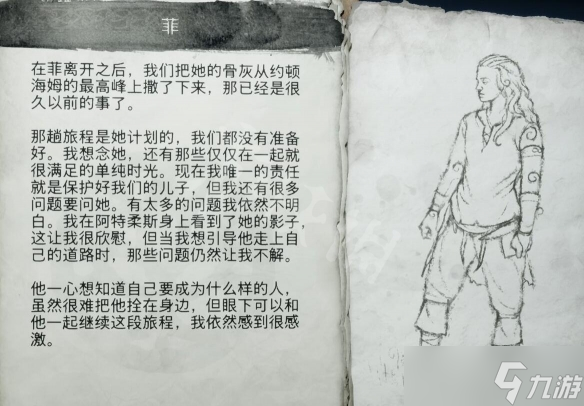 菲
在菲离开之后，我们把她的骨灰从约顿
海姆的最高峰上撒了下来，那已经是很
久以前的事了。
那趟旅程是她计划的，我们都没有准备
好。我想念她，还有那些仅仅在一起就
很满足的单纯时光。现在我唯一的责任
就是保护好我们的儿子，但我还有很多
问题要问她。有太多的问题我依然不明
白。我在阿特柔斯身上看到了她的影子，
这让我很欣慰，但当我想引导他走上自
己的道路时，那些问题仍然让我不解。
他一心想知道自己要成为什么样的人，
虽然很难把他拴在身边，但眼下可以和
他一起继续这段旅程，我依然感到很感
激。
九游